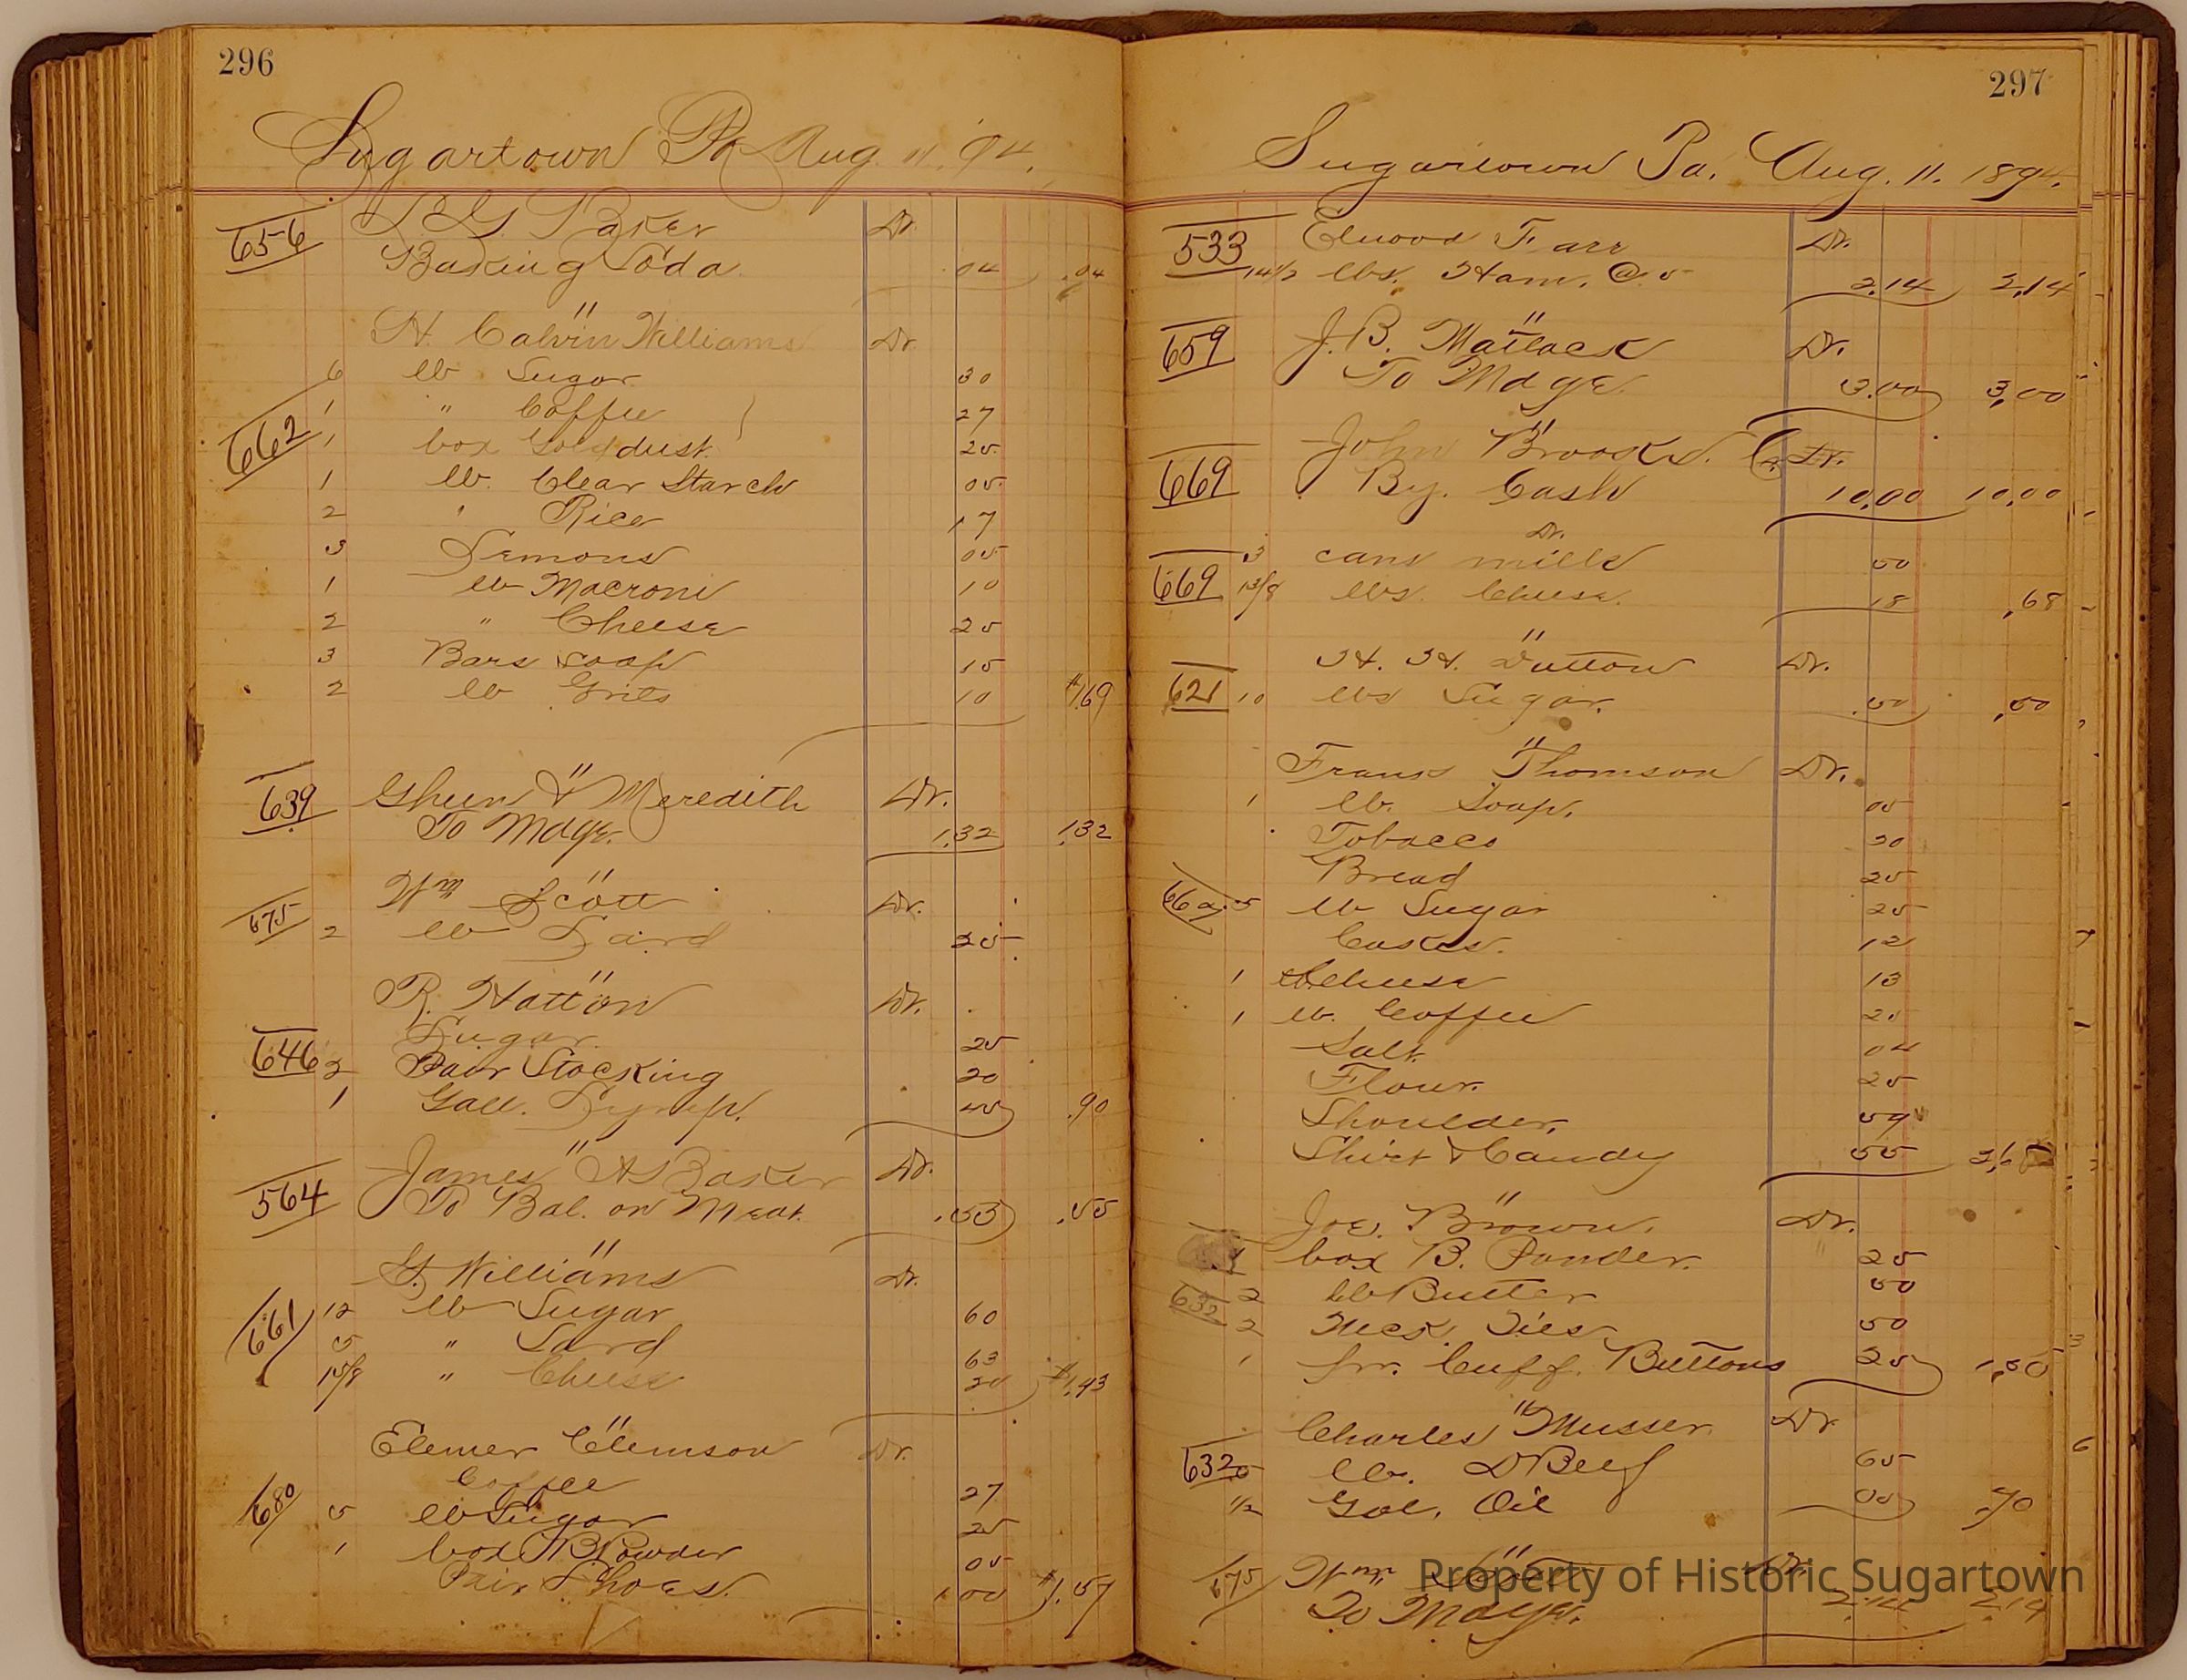 296
Sugartown Pa Aug 11. 94.
656 L. G. Baker Dr.
Baking Soda .04 .04
"
H. Calvin Williams Dr.
6 lb Sugar 30
1 " Coffee 27
662 1 box Gold dust. 25
1 lb. Clear Starch 05
2 " Rice 17
3 Lemons 05
1 lb Macroni 10
2 " Cheese 25
3 Bars soap 15
2 lb Grits 10 $1.69
"
639 & Meredith Dr.
To Mdge. 1.32 1.32
"
675 Wm Scott Dr.
2 lb Lard 25
"
R. Hatton Dr.
Sugar 25
646 2 Pair Stocking 20
1 Gall. Syrup. 45 .90
"
James A Baker Dr.
564 To Bal. on Meat. .55 .55
"
Williams Dr.
661 12 lb Sugar 60
5 " Lard 63
1 5/8 " Cheese 20 $1.43
"
Elemer Clemson Dr.
Coffee 27
680 5 lb Sugar 25
1 box B Powder 05
Pair Shoes. 1 00 $1.57
297
Sugartown Pa. Aug. 11. 1894.
533 Elwood Farr Dr.
14 1/2 lbs. Ham, @ 2.14 2,14
"
659 J. B. Matlack Dr.
To Mdge. 3.00 3,00
"
John Brooks. Cr. Dr.
669 By. Cash 10,00 10,00
Dr.
669 3 cans milk 50
1 3/8 lbs. Cheese. 18 ,68
"
H. H. Dutton Dr.
621 10 lbs Sugar. .50 ,50
"
Frank Thomson Dr.
1 lb. Soap. 05
Tobacco 20
Bread 25
5 lb Sugar 25
Cakes. 12
1 lb. Cheese 13
1 lb. Coffee
Salt. 04
Flour. 25
Shoulder. 59
Shirt & Candy 55
"
Joe. Brown. Dr.
1 box B. Powder. 25
632 2 lb Butter 50
2 Neck Ties 50
1 pr. Cuff. Buttons 25 1,50
"
Charles Musser Dr.
632 5 lb. D Beef 65
1/2 Gal. Oil 05 .70
"
675 Wm. Scott Dr.
To Mdge. 2.14 2,14
Property of Historic Sugartown